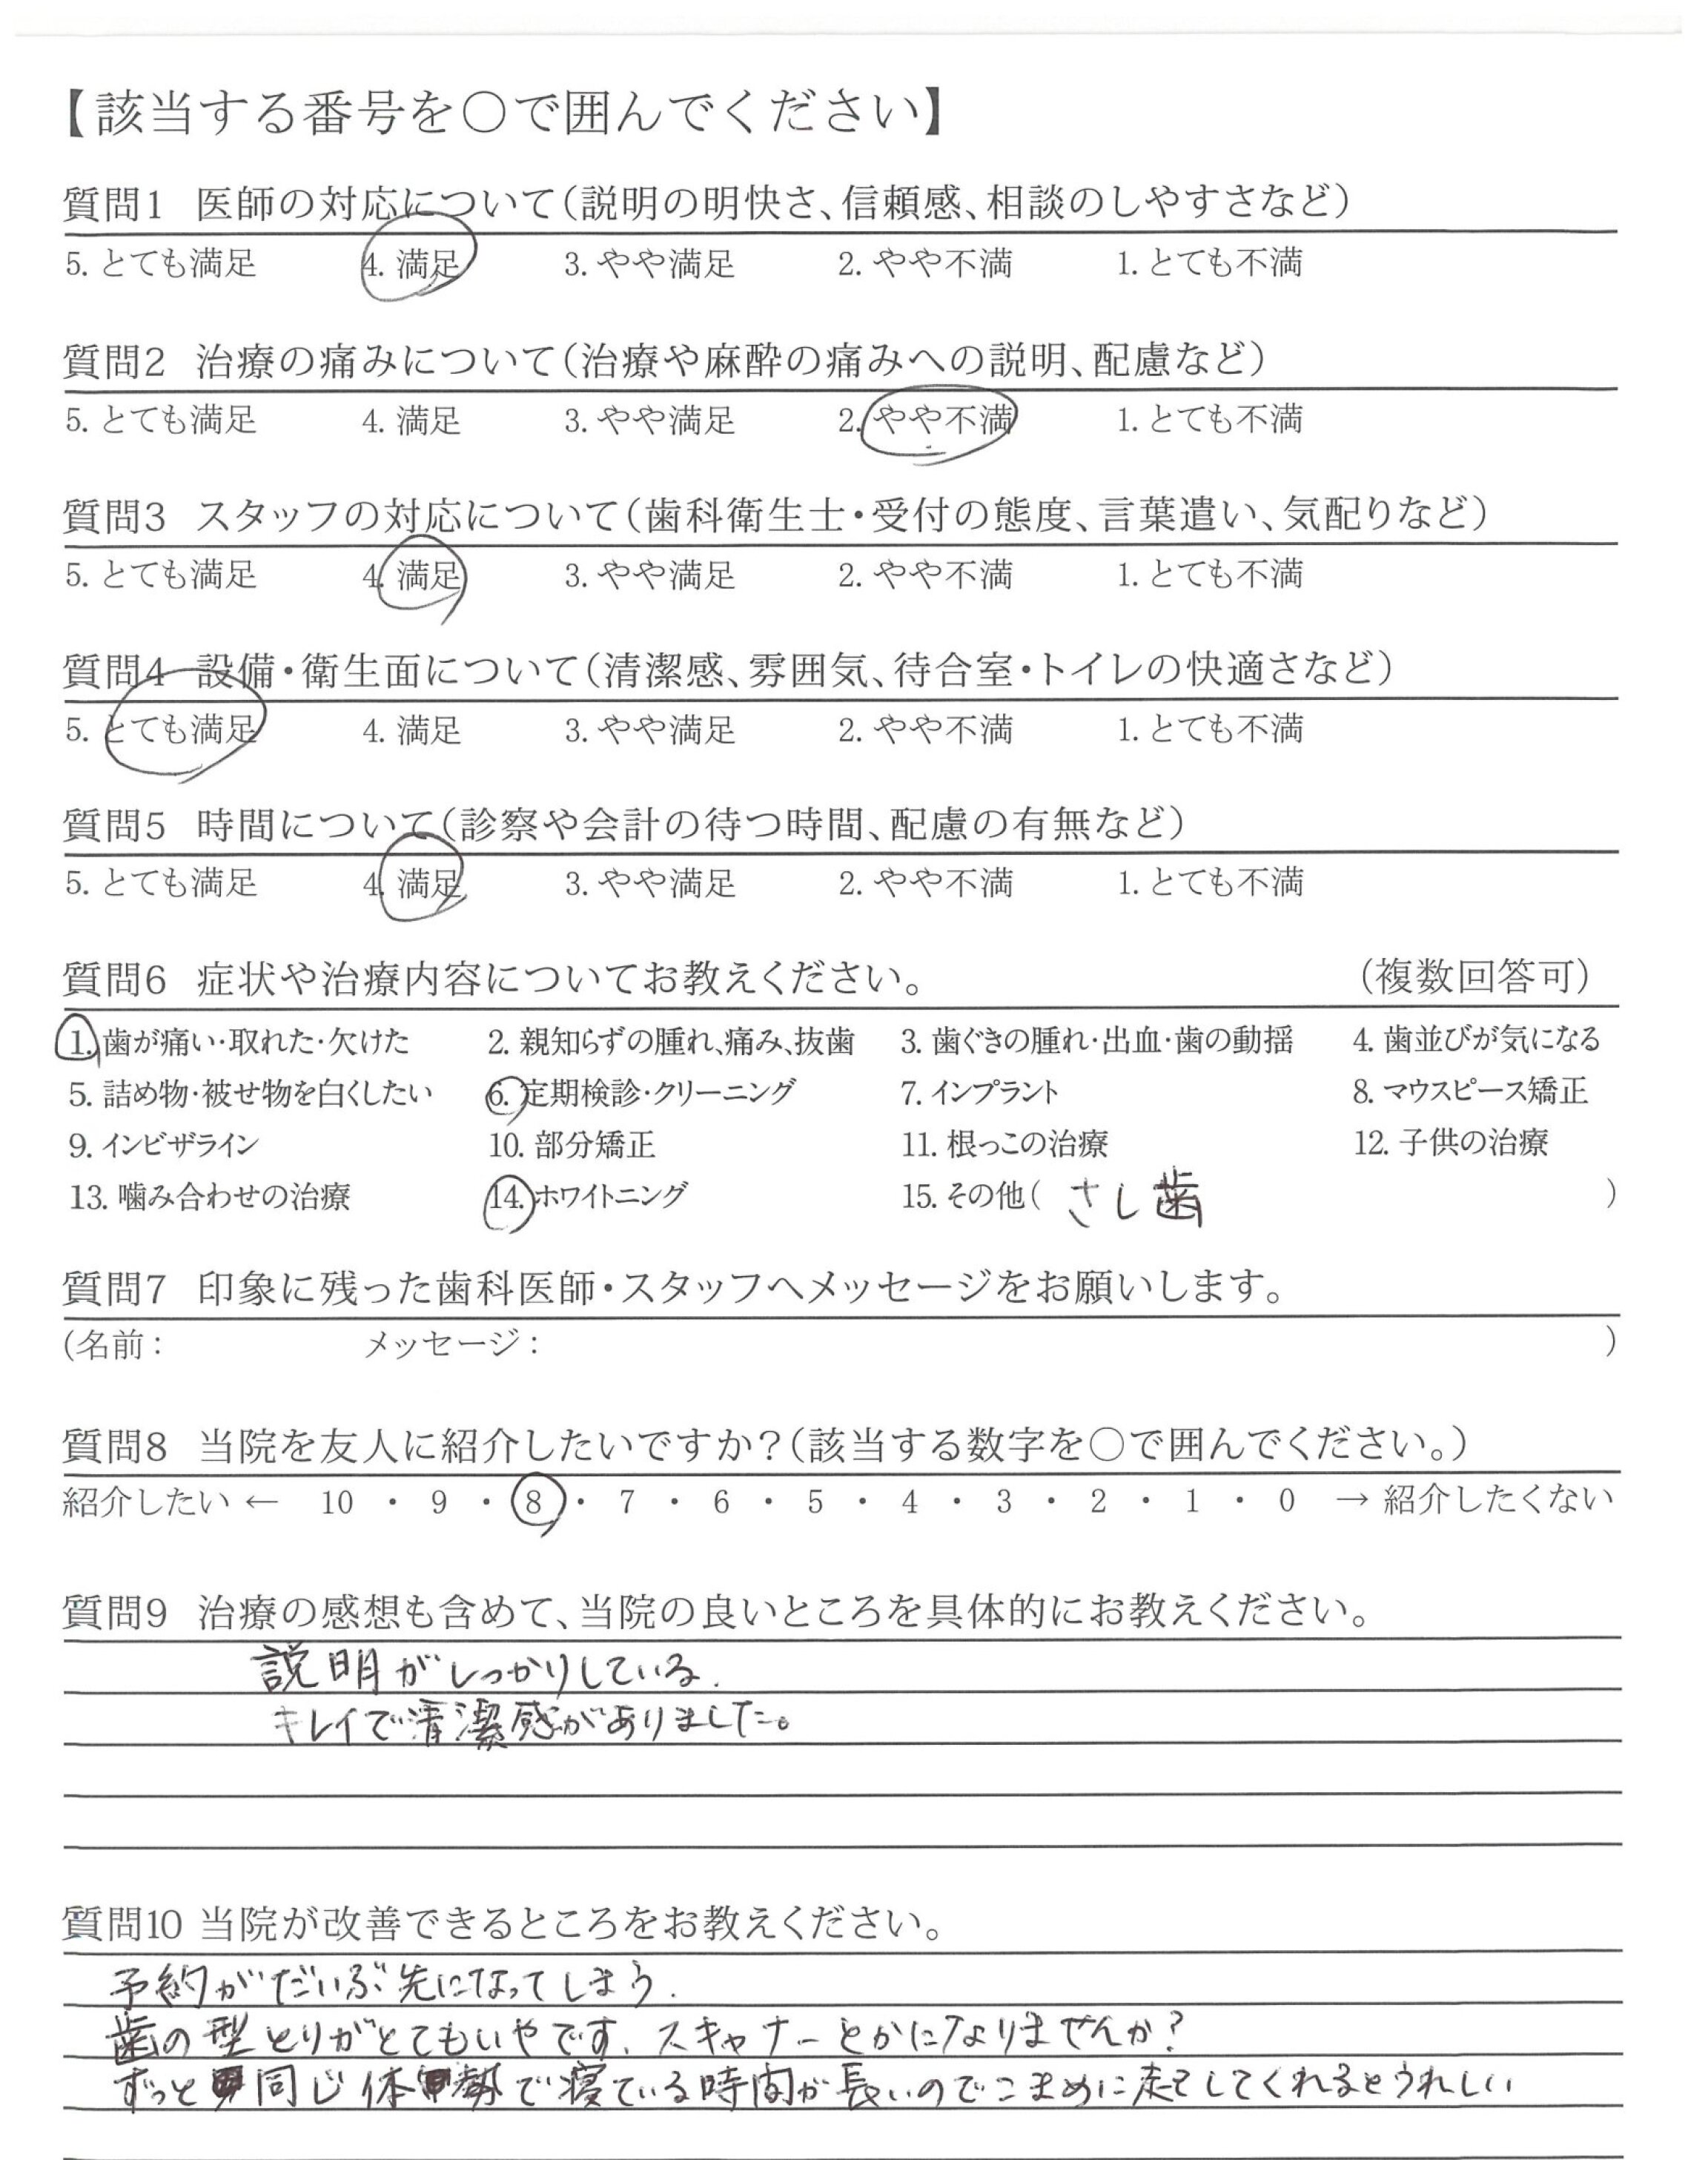 【該当する番号を〇で囲んでください】
質問1 医師の対応について（説明の明快さ、信頼感、相談のしやすさなど）
5. とても満足 4. 満足 3. やや満足 2. やや不満 1. とても不満
質問2 治療の痛みについて（治療や麻酔の痛みへの説明、配慮など）
5. とても満足 4. 満足 3. やや満足 2. やや不満 1. とても不満
質問3 スタッフの対応について（歯科衛生士・受付の態度、言葉遣い、気配りなど）
5. とても満足 4. 満足 3. やや満足 2. やや不満 1. とても不満
質問4 設備・衛生面について（清潔感、雰囲気、待合室・トイレの快適さなど）
5. とても満足 4. 満足 3. やや満足 2. やや不満 1. とても不満
質問5 時間について（診察や会計の待つ時間、配慮の有無など）
5. とても満足 4. 満足 3. やや満足 2. やや不満 1. とても不満
質問6 症状や治療内容についてお教えください。 （複数回答可）
1. 歯が痛い・取れた・欠けた 2. 親知らずの腫れ、痛み、抜歯 3. 歯ぐきの腫れ・出血・歯の動揺 4. 歯並びが気になる
5. 詰め物・被せ物を白くしたい 6. 定期検診・クリーニング 7. インプラント 8. マウスピース矯正
9. インビザライン 10. 部分矯正 11. 根っこの治療 12. 子供の治療
13. 噛み合わせの治療 14. ホワイトニング 15. その他（ さし歯 ）
質問7 印象に残った歯科医師・スタッフへメッセージをお願いします。
（名前： メッセージ： ）
質問8 当院を友人に紹介したいですか？（該当する数字を〇で囲んでください。）
紹介したい ← 10 ・ 9 ・ 8 ・ 7 ・ 6 ・ 5 ・ 4 ・ 3 ・ 2 ・ 1 ・ 0 → 紹介したくない
質問9 治療の感想も含めて、当院の良いところを具体的にお教えください。
説明がしっかりしている.
キレイで清潔感がありました。
質問10 当院が改善できるところをお教えください。
予約がだいぶ先になってしまう.
歯の型とりがとてもいやです. スキャナーとかになりませんか?
ずっと同じ体勢で寝ている時間が長いのでこまめに起こしてくれるとうれしい